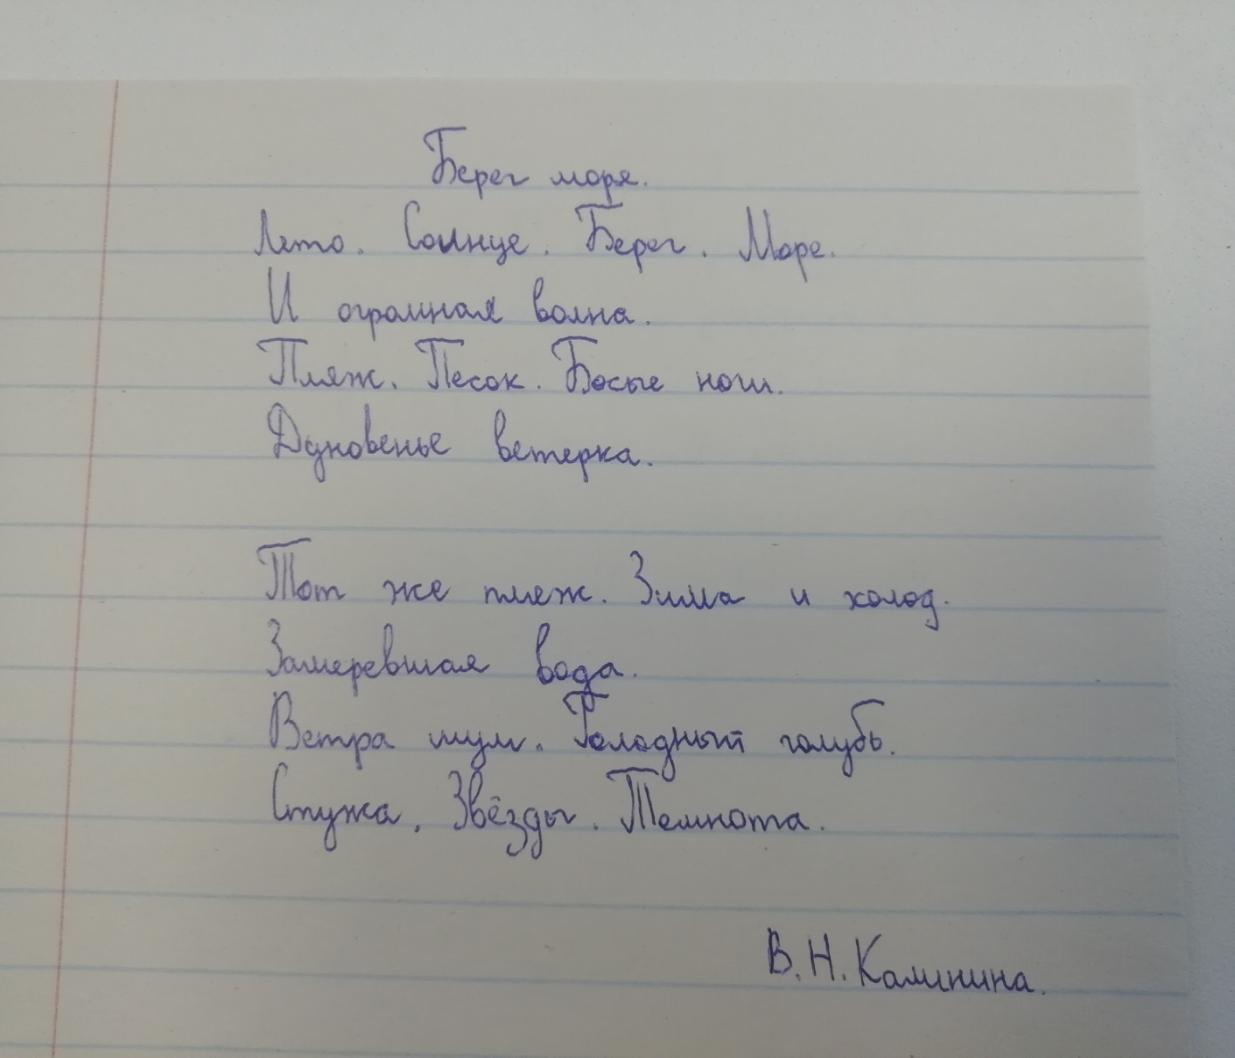 Берег моря.
Лето. Солнце. Берег. Море.
И огромная волна.
Пляж. Песок. Босые ноги.
Дуновенье ветерка.
Тот же пляж. Зима и холод.
Замеревшая вода.
Ветра шум. Голодный голубь.
Стужа. Звёзды. Темнота.
В. Н. Калинина.